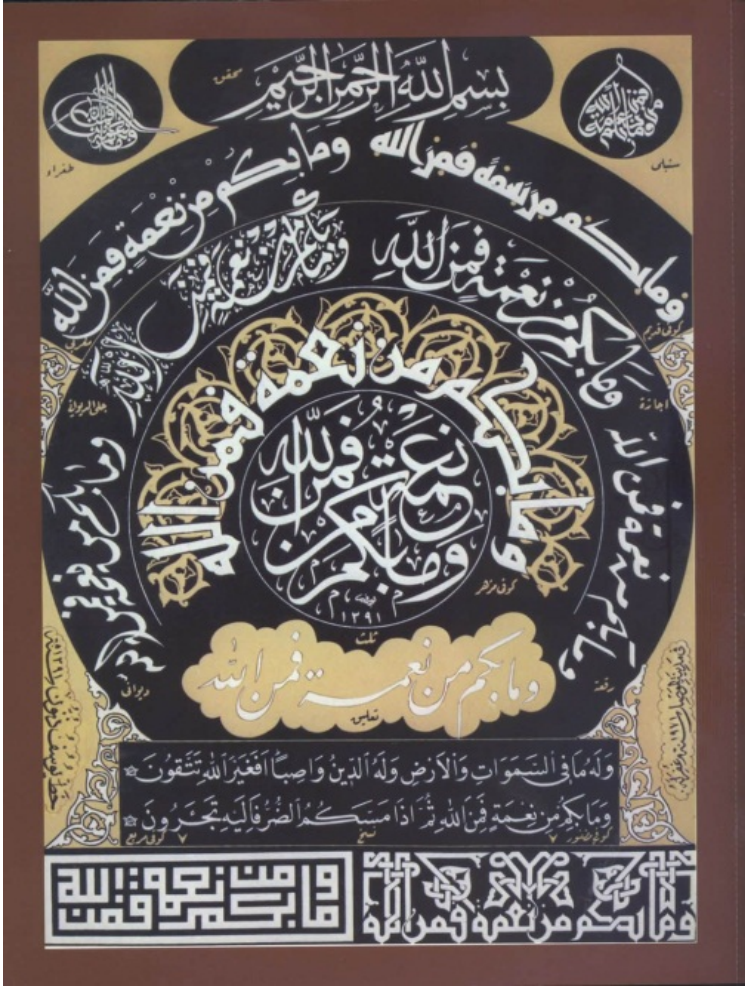 بسم الله الرحمن الرحيم
محقق
وما بكم من نعمة فمن الله
سنبلي
وما بكم من نعمة فمن الله
طغراء
وما بكم من نعمة فمن الله
كوفي قديم
وما بكم من نعمة فمن الله
وما بكم من نعمة فمن الله
اجازة
وما بكم من نعمة فمن الله
جلي الديواني
وما بكم من نعمة فمن الله
كوفي مزهر
وما بكم من نعمة فمن الله
١٣٩١
ثلث
وما بكم من نعمة فمن الله
رقعة
وما بكم من نعمة فمن الله
ديواني
وما بكم من نعمة فمن الله
تعليق
وله ما في السموات والأرض وله الدين واصباً أفغير الله تتقون
وما بكم من نعمة فمن الله ثم اذا مسكم الضر فاليه تجرون
كوفي مضفور
نسخ
كوفي مربع
وما بكم من نعمة فمن الله
وما بكم من نعمة فمن الله